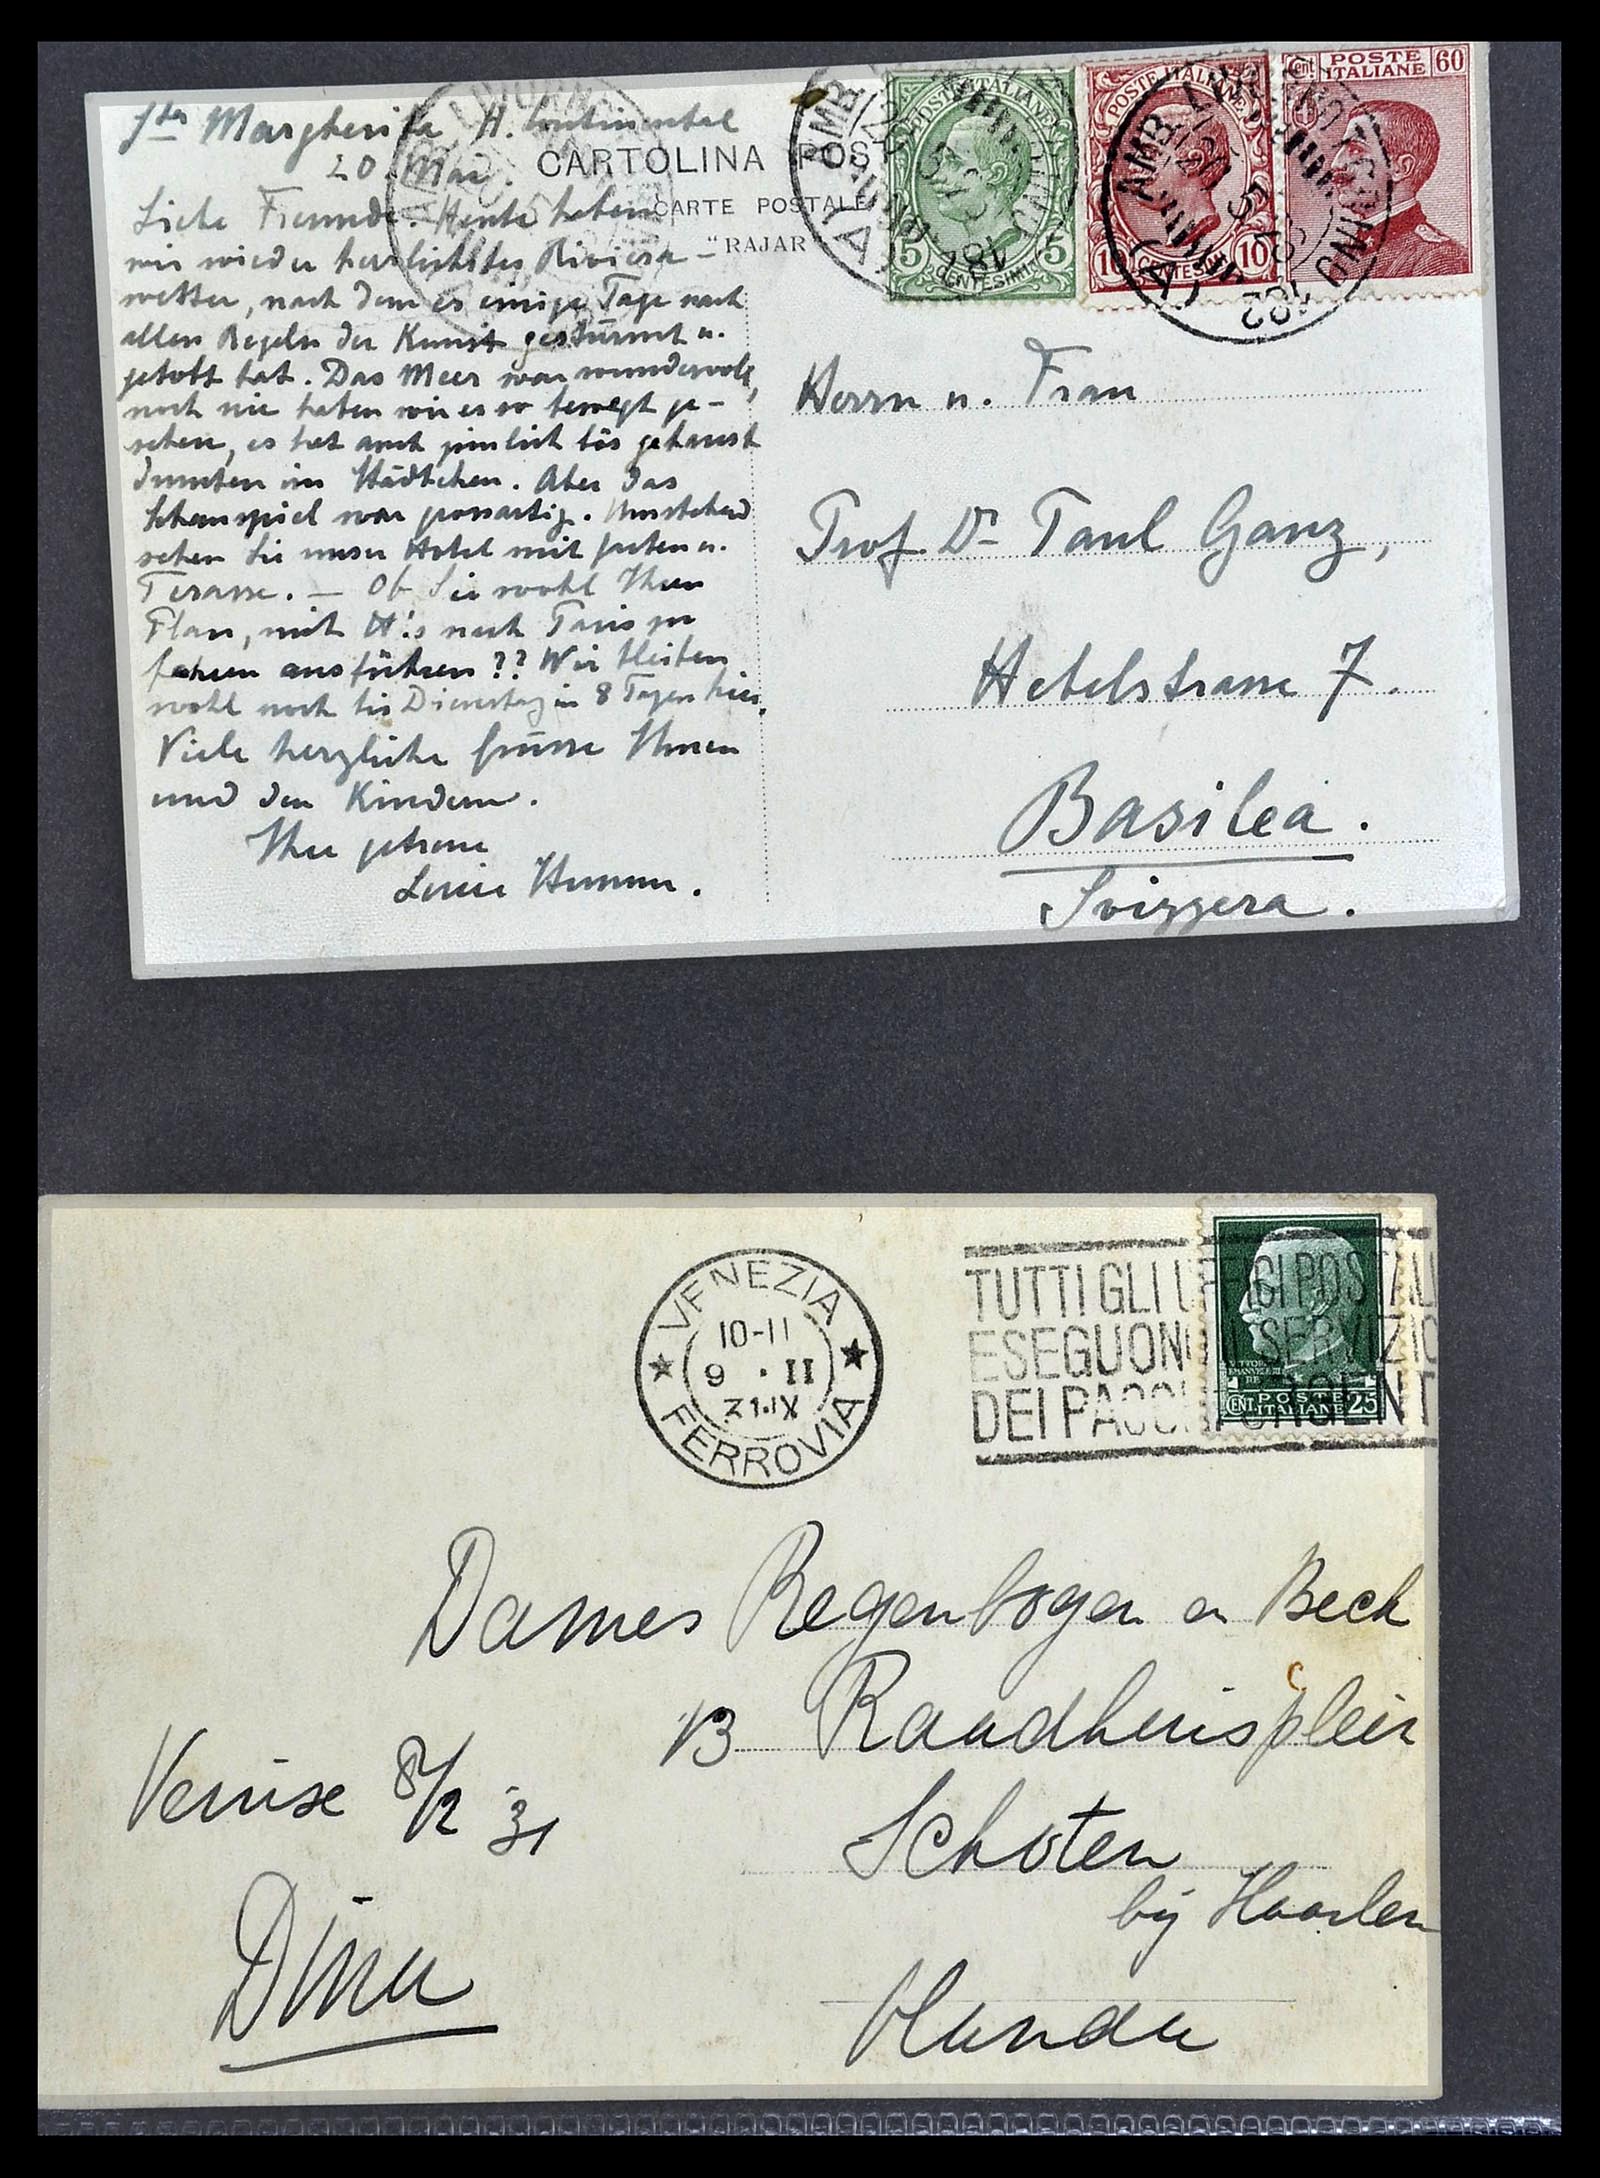 Sta Margherita H. Continental
20. Mai.
Liebe Freunde. Heute haben
wir wieder herrlichstes Riviera-
wetter, nach dem es einige Tage nach
allen Regeln der Kunst gestürmt u.
getobt hat. Das Meer war wundervoll,
noch nie haben wir es so bewegt ge-
sehen, es hat auch ziemlich bös gehaust
drunten im Städtchen. Aber das
Schauspiel war grossartig. Umstehend
sehen Sie unser Hotel mit Garten u.
Terasse. — Ob Sie wohl Ihren
Plan, mit H's nach Paris zu
fahren ausführen?? Wir bleiben
wohl noch bis Dienstag in 8 Tagen hier.
Viele herzliche Grüsse Ihnen
und den Kindern.
Ihre getreue
CARTOLINA POS
CARTE POSTALE
"RAJAR"
POSTE ITALIANE
5 5
CENTESIMI
POSTE ITALIANE
10 10
CENTESIMI
Cent. POSTE ITALIANE 60
AMB.
182
AMB.
(A)
182
Herrn u. Frau
Prof. Dr Paul Ganz,
Hebelstrasse 7.
Basilea.
Svizzera.
VENEZIA
10-11
9 · II
31·IX
FERROVIA
TUTTI GLI UFFICI POSTALI
ESEGUONO SERVIZIO
DEI PACCHI
VITTORIO
EMANUELE III
RE
CENT. POSTE ITALIANE 25
Dames Regenbogen en Beck
13 Raadhuisplein
Schoten
bij Haarlem
Olanda
Venise 8/2 31
Dina